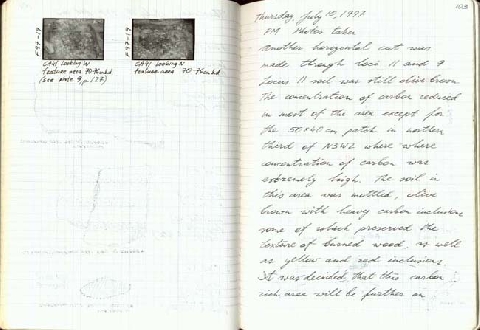 F97-19
F97-19
looking W
feature area 70-
(see note 9, p. 177)
looking W
feature area 70-
Thursday July 10, 1997
PM Photos taken
Another horizontal cut was
made though loci 11 and 9
Locus 11 soil was still olive brown
the concentration of carbon reduced
in most of the area except for
the 50x40 cm patch in northern
third of N342 where where
concentration of carbon was
extremely high. The soil in
this area was mottled, olive
brown with heavy carbon inclusions
some of which preserved the
texture of burned wood, as well
as yellow and red inclusions
It was decided that this carbon
rich area will be further an